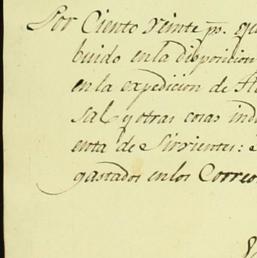 Por Ciento veinte ps. que
buido en la disposicion
en la expedicion de
sal y otras cosas ind
enta de Sirvientes:
gastados en los Correo